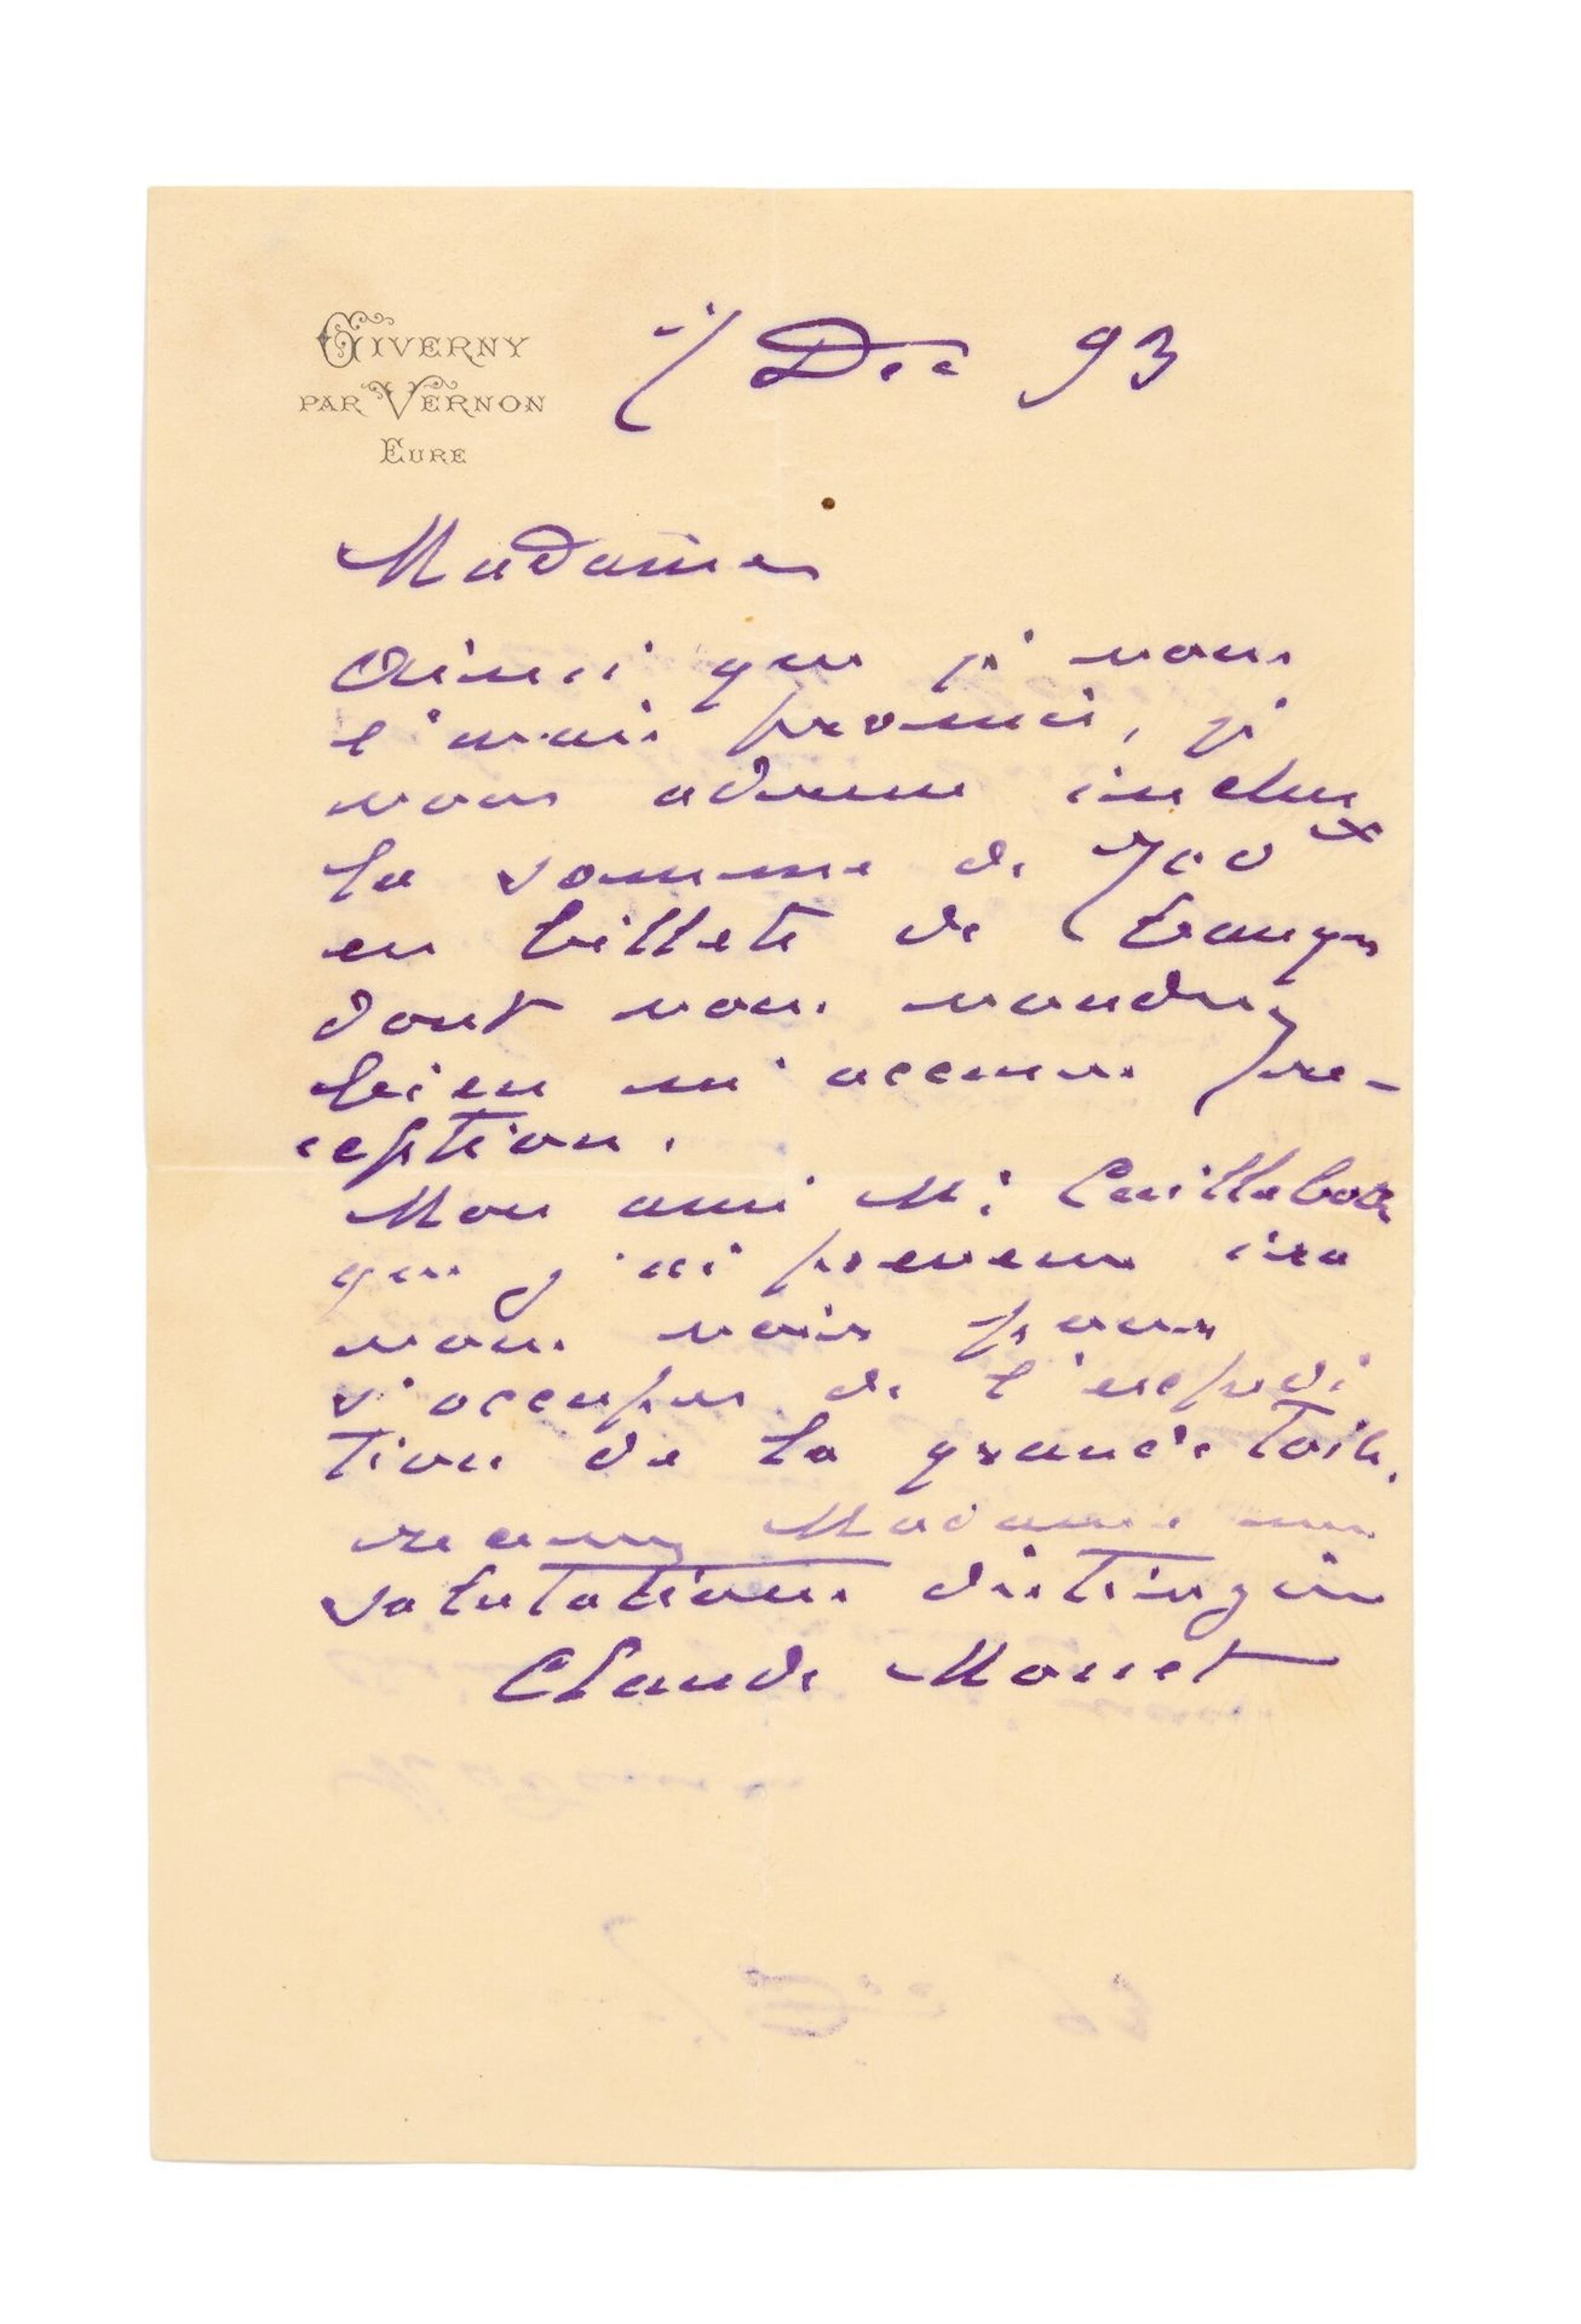 GIVERNY
PAR VERNON
EURE
7 Dec 93
Madame
Ainsi que je vous
l'avais promis, je
vous adresse inclus
la somme de 700 fr
en billets de banque
dont vous voudrez
bien m'accuser ré-
ception.
Mon ami M. Caillebotte
que j'ai prévenu ira
vous voir pour
s'occuper de l'expédi
tion de la grande toile.
recevez Madame mes
salutations distinguées
Claude Monet